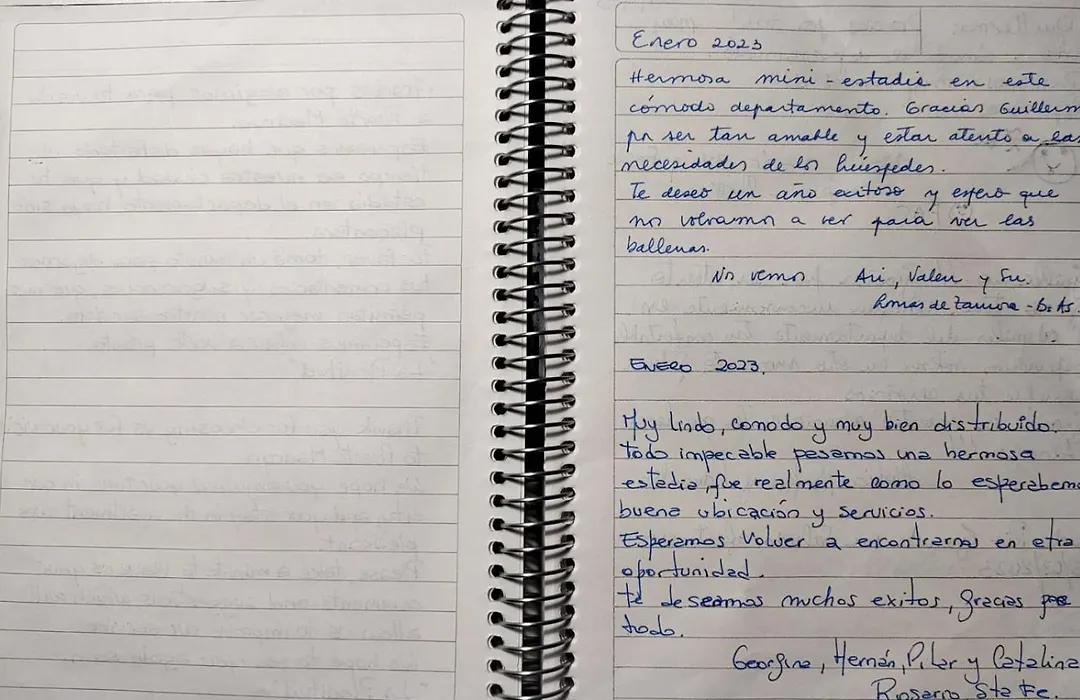 Enero 2023
Hermosa mini-estadía en este
cómodo departamento. Gracias Guillerm
por ser tan amable y estar atento a las
necesidades de los huéspedes.
Te deseo un año exitoso y espero que
nos volvamos a ver para ver las
ballenas.
Nos vemos Ari, Valen y Su.
Lomas de Zamora - Bs As.
ENERO 2023.
Muy lindo, comodo y muy bien distribuido.
todo impecable pasamos una hermosa
estadia, fue realmente como lo esperabamo
buena ubicación y servicios.
Esperamos Volver a encontrarnos en otra
oportunidad.
te deseamos muchos exitos, gracias por
todo.
Georgina, Hernán, Pilar y Catalina
Rosario Sta Fe.